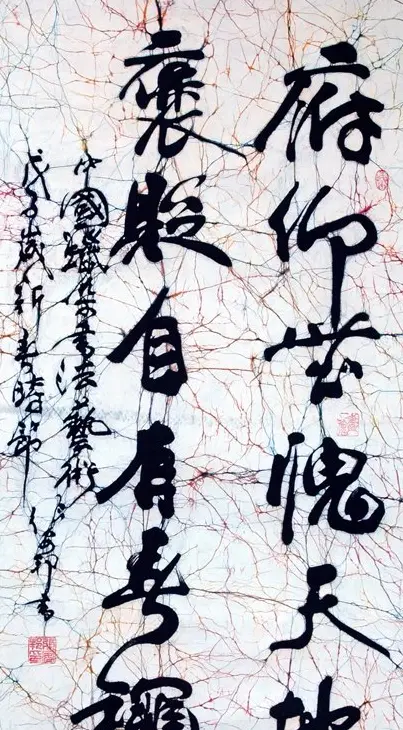 府仰無愧天地
褒貶自有春穐
中國蠟染書法藝術
戊子歲新春時節